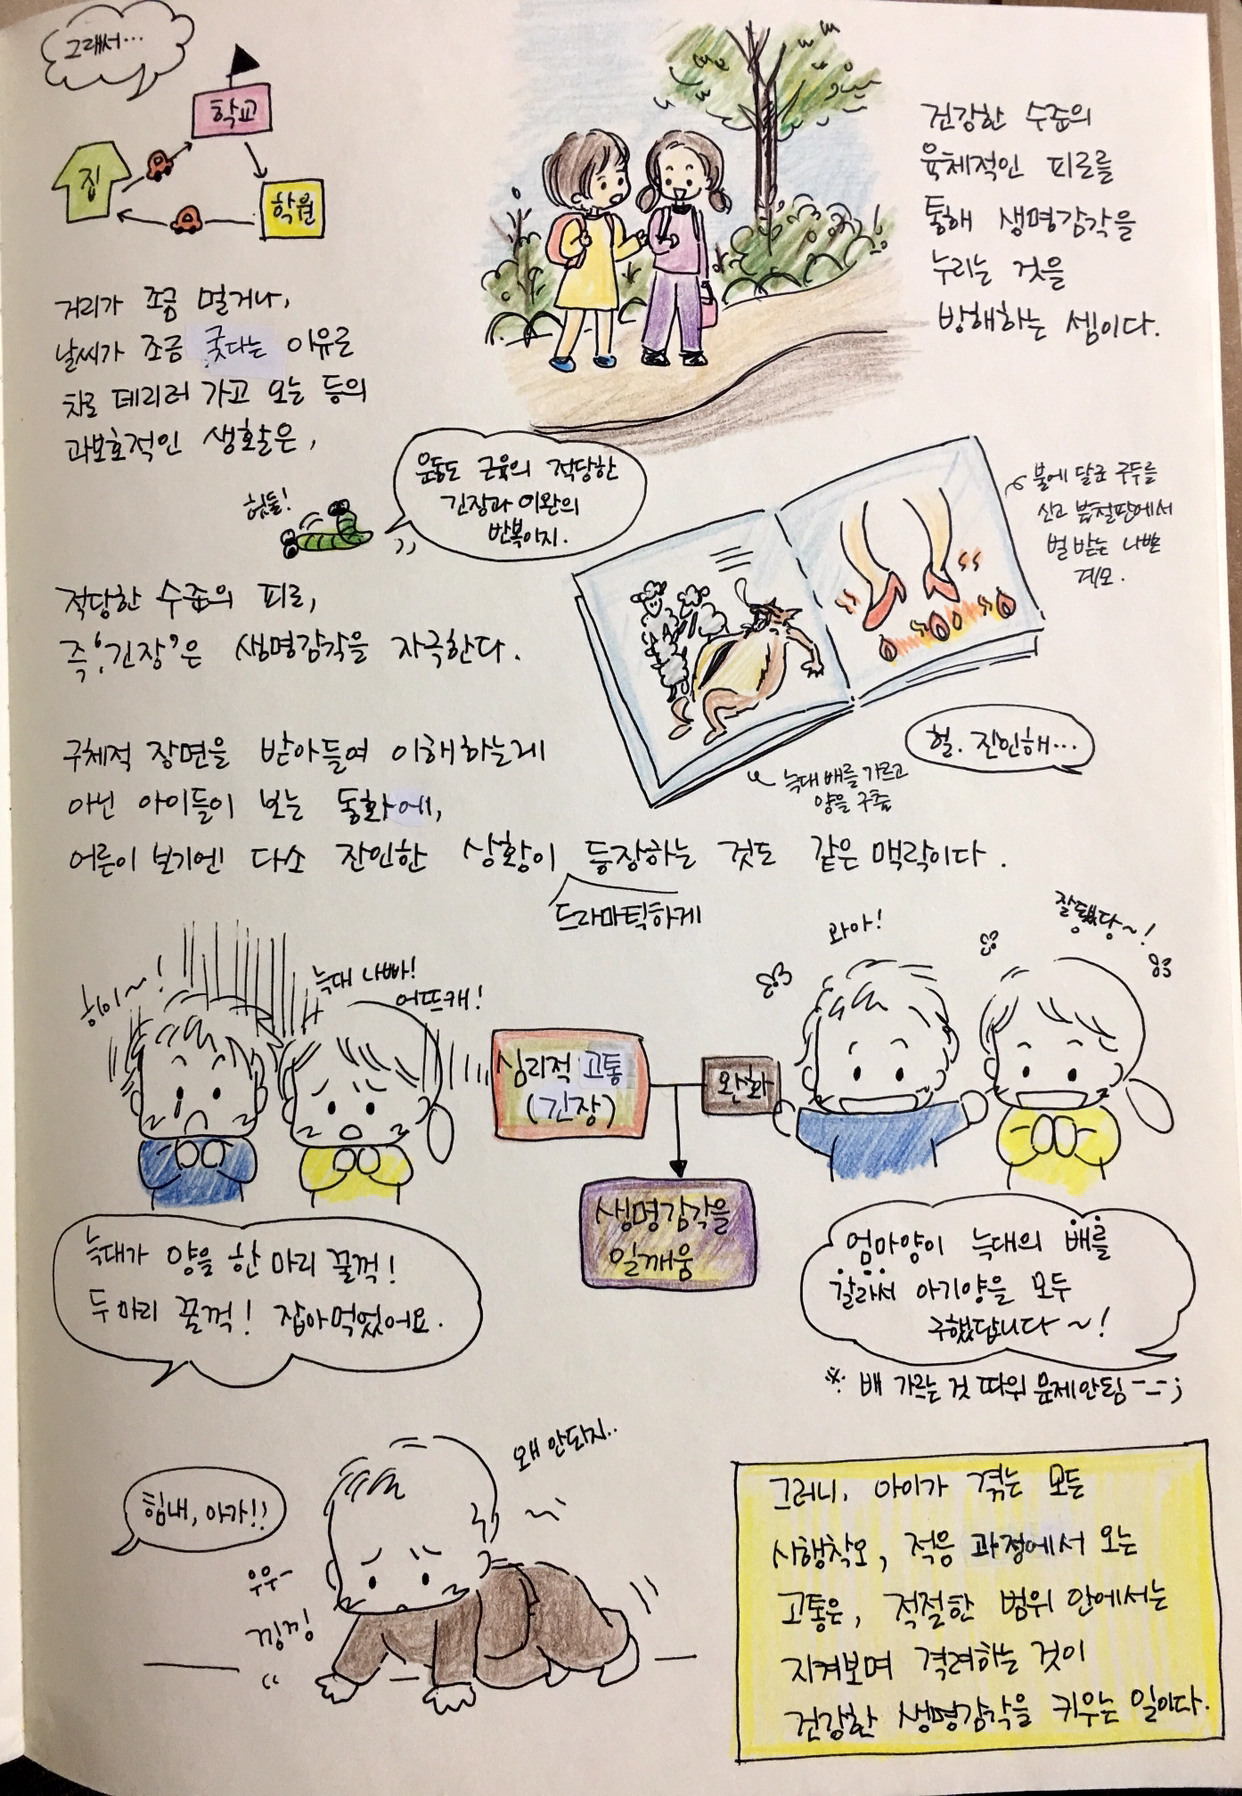 그래서...
학교
집
학원
거리가 조금 멀거나,
날씨가 조금 궂다는 이유로
차로 데리러 가고 오는 등의
과보호적인 생활은,
건강한 수준의
육체적인 피로를
통해 생명감각을
누리는 것을
방해하는 셈이다.
힘듦!
운동도 근육의 적당한
긴장과 이완의
반복이지.
적당한 수준의 피로,
즉, '긴장'은 생명감각을 자극한다.
불에 달군 구두를
신고 불철판에서
벌 받는 나쁜
계모.
헐. 잔인해...
늑대 배를 가르고
양을 구출
구체적 장면을 받아들여 이해하는게
아닌 아이들이 보는 동화에,
어른이 보기엔 다소 잔인한 상황이 등장하는 것도 같은 맥락이다.
드라마틱하게
히이~!
늑대 나빠!
어뜨캐!
와아!
잘됐당~!
심리적 고통
(긴장)
완화
생명감각을
일깨움
늑대가 양을 한 마리 꿀꺽!
두 마리 꿀꺽! 잡아먹었어요.
엄마양이 늑대의 배를
갈라서 아기양을 모두
구했답니다~!
※ 배 가르는 것 따위 문제안됨 -_-;
힘내, 아가!!
왜 안되지..
우우-
낑낑
그러니, 아이가 겪는 모든
시행착오, 적응 과정에서 오는
고통은, 적절한 범위 안에서는
지켜보며 격려하는 것이
건강한 생명감각을 키우는 일이다.